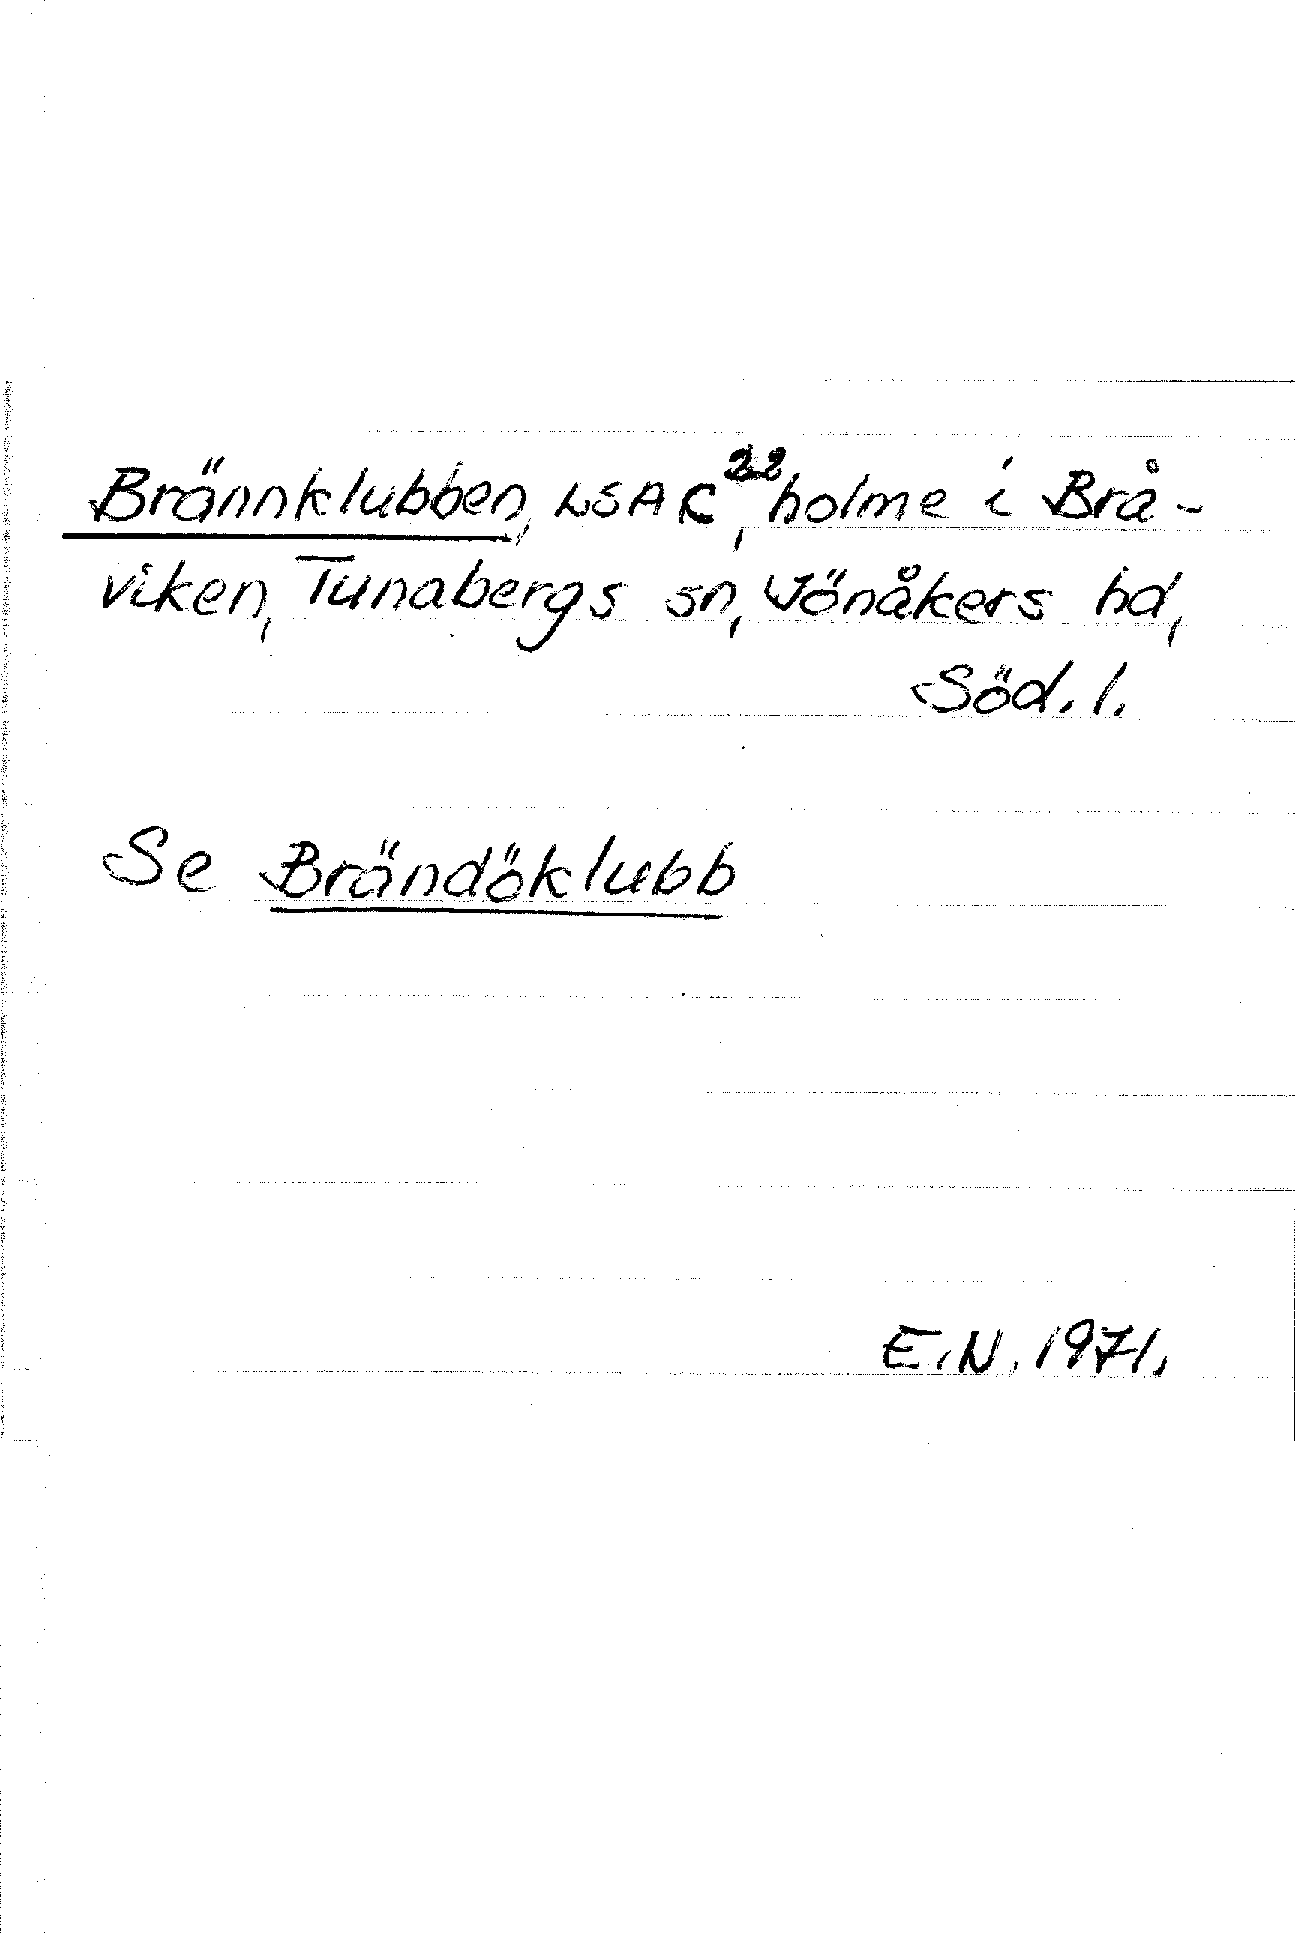 Brännklubben, LSA C²², holme i Brå-
viken, Tunabergs sn, Jönåkers hd,
Söd. l.
Se Brändöklubb
E.N. 1971.